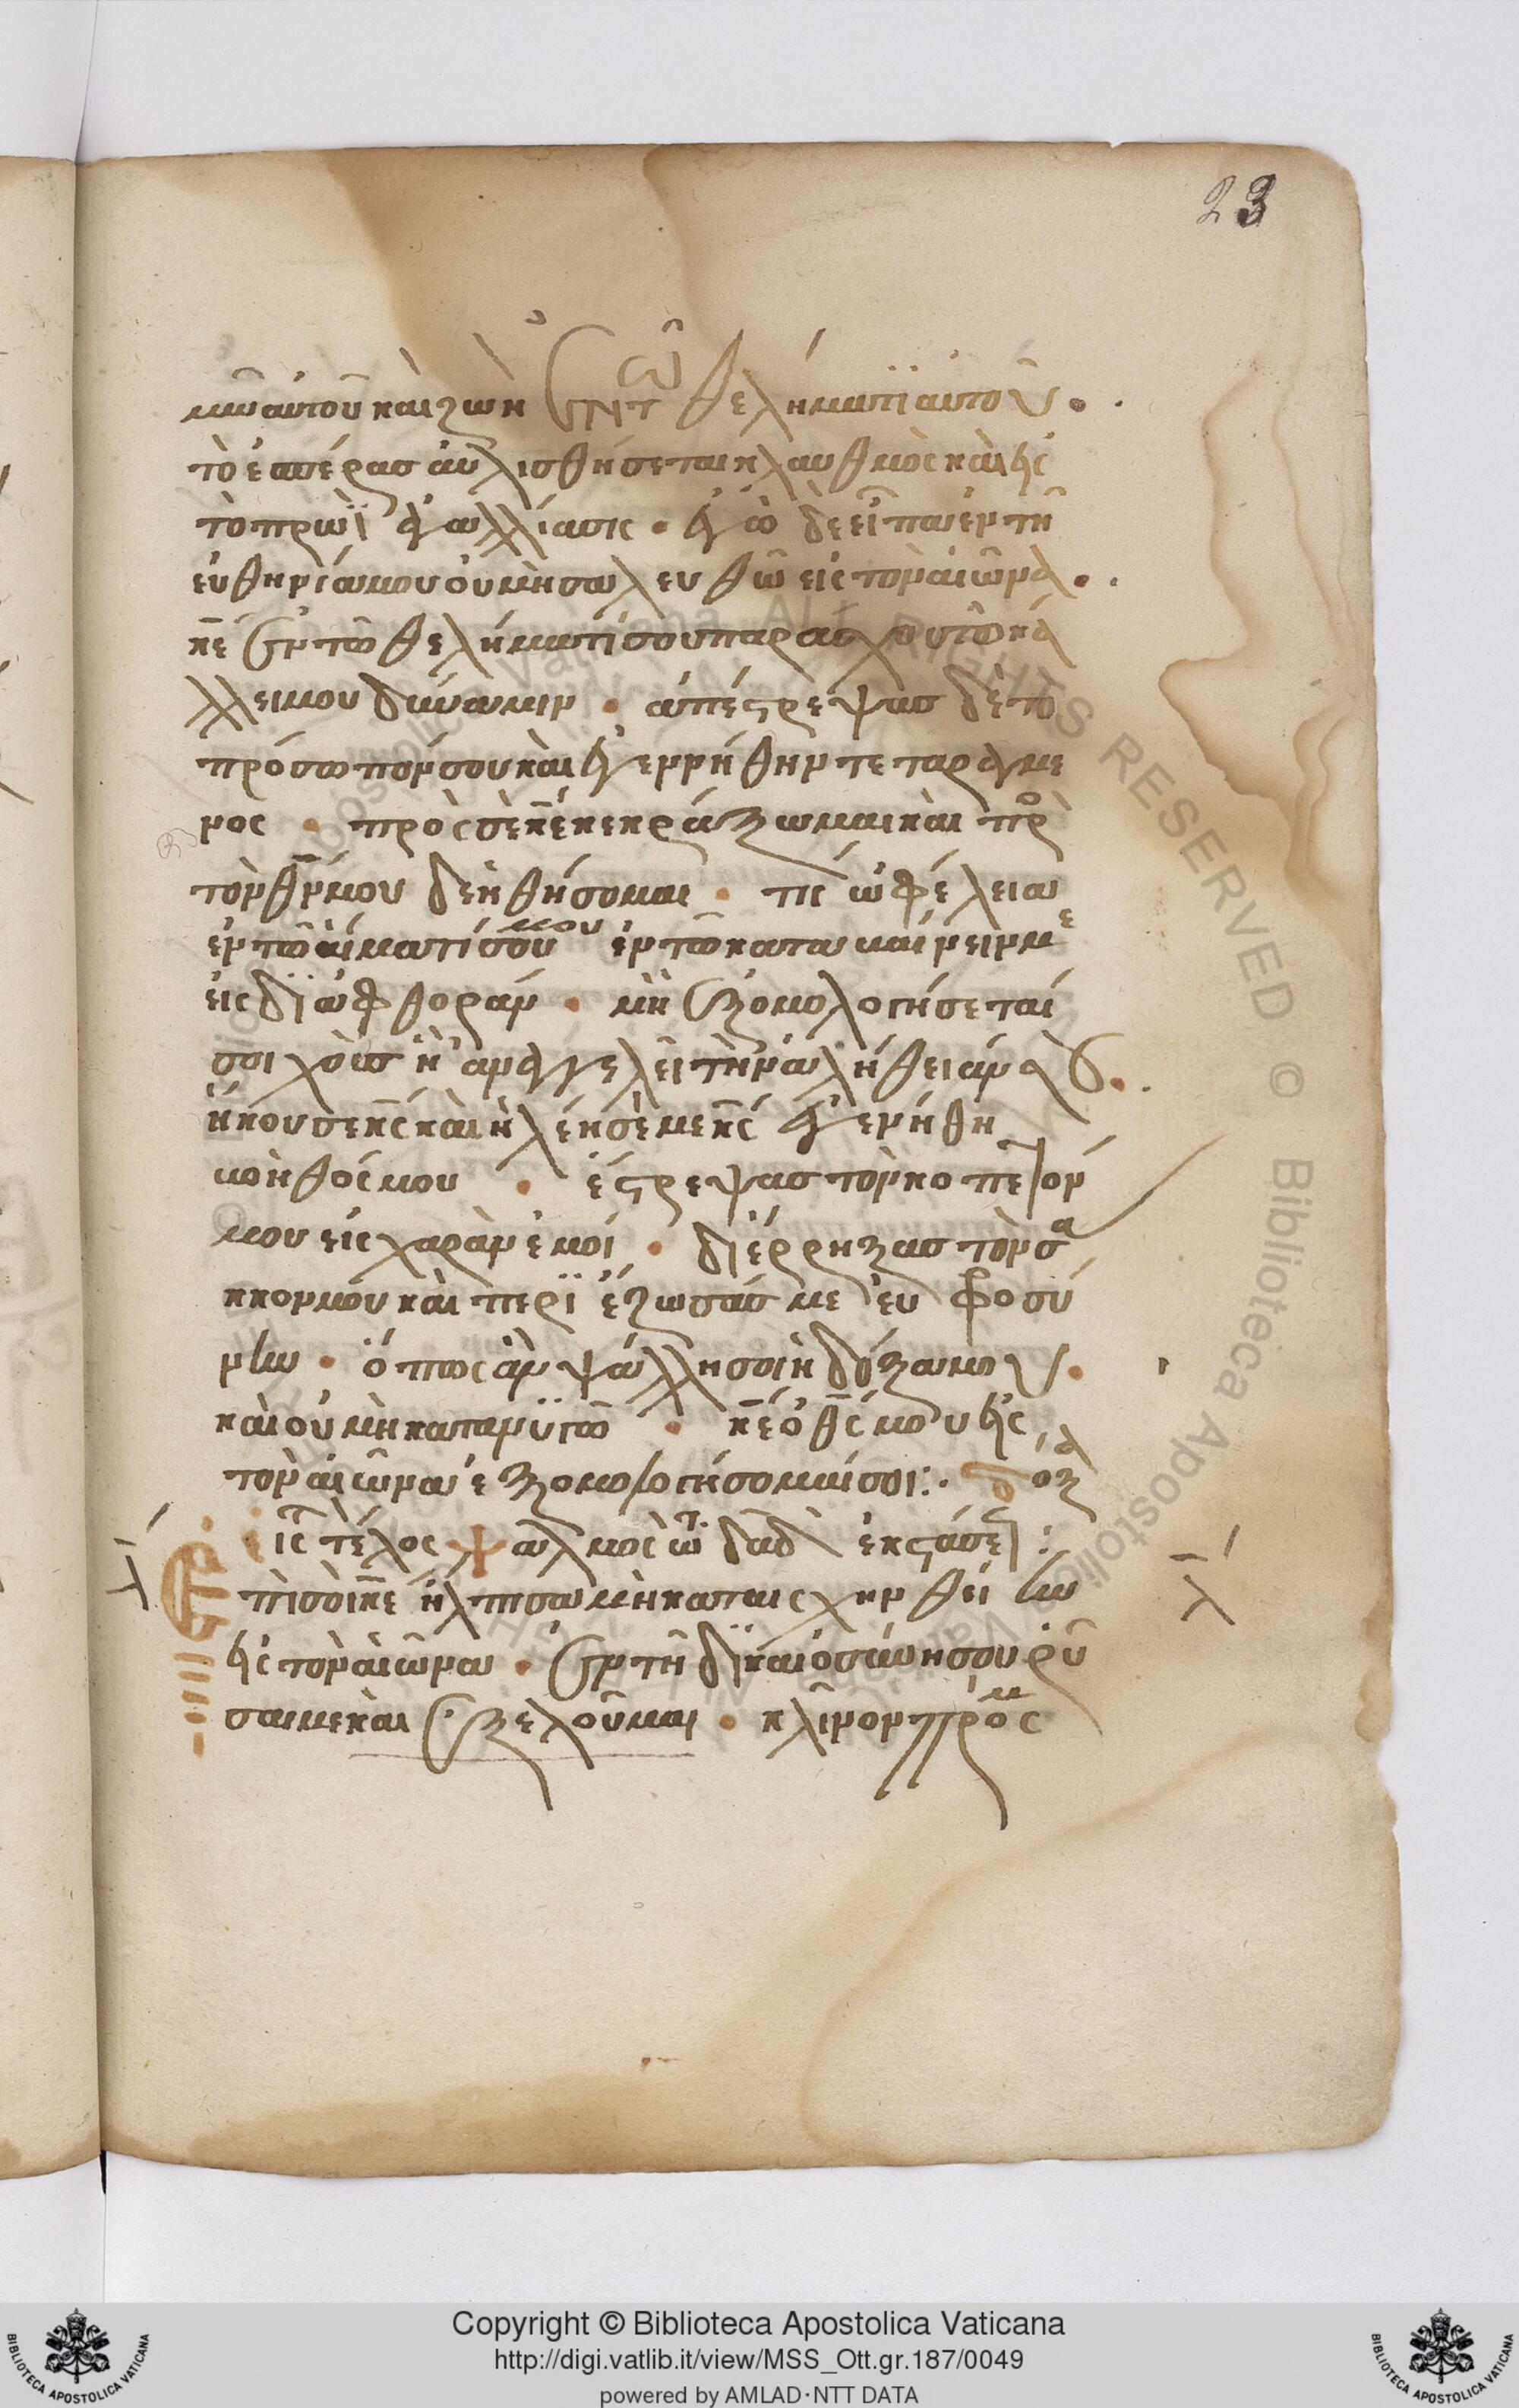 23
μῶ αὐτοῦ καὶ ζωὴ ἐν τῶ θελήματϊ αὐτοῦ.
τὸ ἑσπέρας αὐλισθήσεται κλαυθμὸς καὶ εἰς
τὸ πρωῒ ἀγαλλίασις • ἐγὼ δὲ εἶπα ἐν τῆ
εὐθηνία μου οὐ μὴ σαλευθῶ εἰς τὸν αἰῶνα.
κε̄ ἐν τῶ θελήματί σου παράσχου τῶ κά
λλει μου δύναμιν • ἀπέστρεψας δὲ τὸ
πρόσωπόν σου καὶ ἐγεννήθην τεταραγμέ
νος • πρὸς σὲ κε̄ κεκράξωμαι καὶ πρ
τὸν θν̄ μου δεηθήσομαι • τίς ὠφέλεια
ἐν τῶ αἵματί μου ἐν τῶ καταβαίνειν με
εἰς δϊαφθοράν • μὴ ἐξομολογήσεταί
σοι χοῦς ἢ ἀναγγελεῖ τὴν ἀλήθειάν σου.
ἤκουσε κς̄ καὶ ἠλέησέ με κς̄ ἐγενήθη
βοηθός μου • ἔστρεψας τὸν κοπετόν
μου εἰς χαρὰν ἐμοί • διέρρηξας τὸν σά
κκον μου καὶ περϊέζωσάς με εὐφροσύ
νην • ὅπως ἂν ψάλλη σοι ἡ δόξα μου.
καὶ οὐ μὴ κατανϋγῶ • κε̄ ὁ θς̄ μου εἰς
τὸν αἰῶνα ἐξομολογήσομαί σοι:. δόξα
εἰς τέλος ψαλμὸς τῶ δαδ ἐκστάσεως:
λ
ἐπὶ σοὶ κε̄ ἤλπισα μὴ καταισχυνθείην
λ
εἰς τὸν αἰῶνα • ἐν τῆ δϊκαιοσύνη σου ῥῦ
σαί με καὶ ἐξελοῦ μαι • κλῖνον πρός μ
Copyright © Biblioteca Apostolica Vaticana
http://digi.vatlib.it/view/MSS_Ott.gr.187/0049
powered by AMLAD·NTT DATA